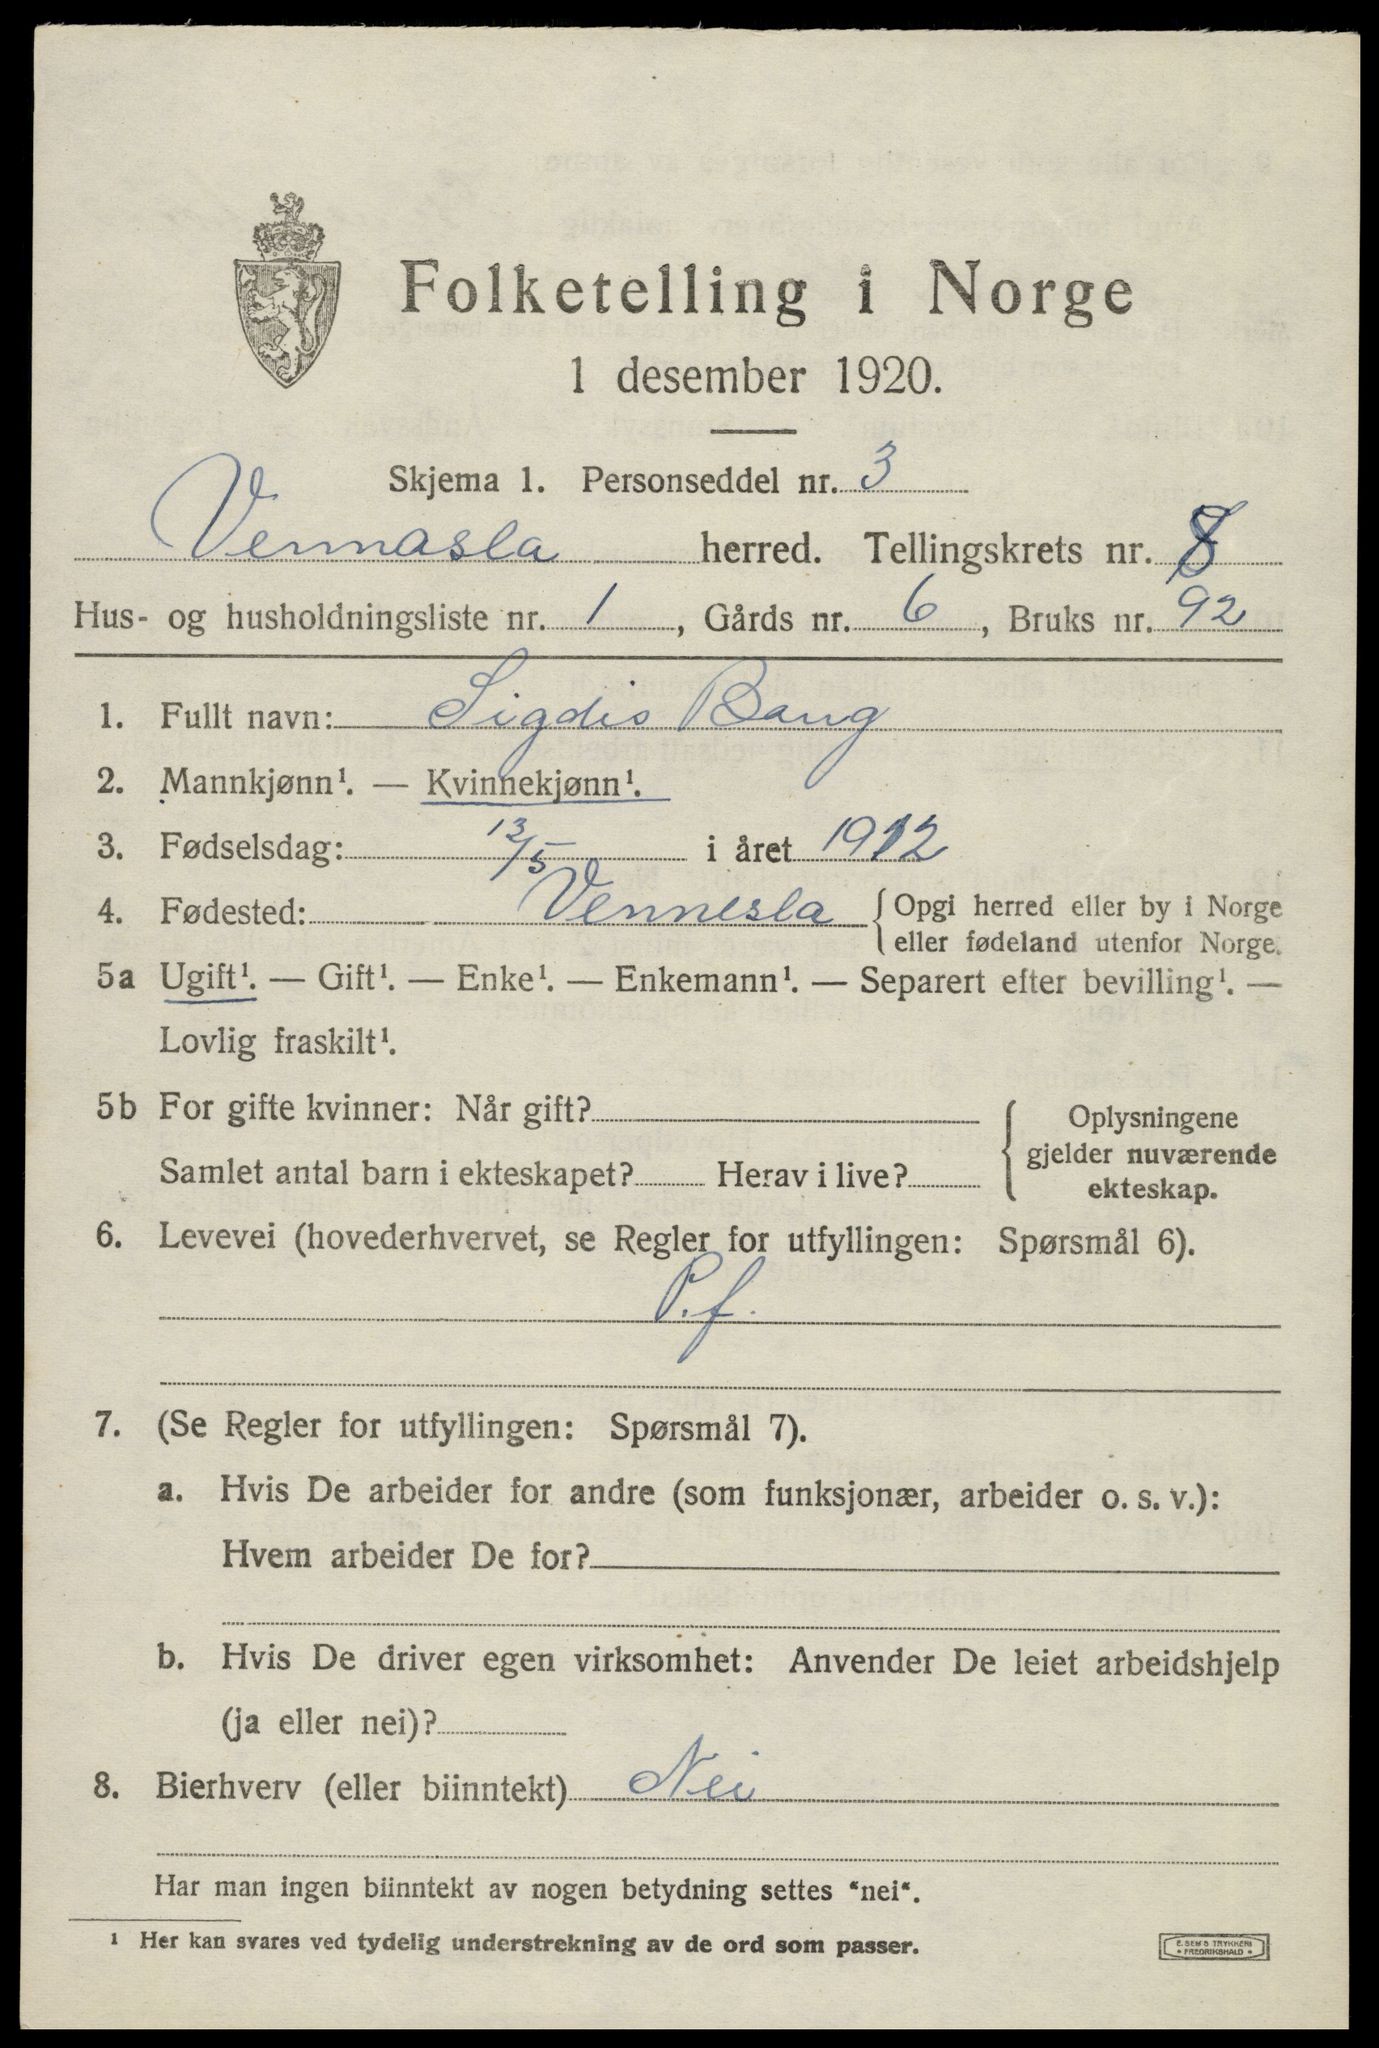 Folketelling i Norge
1 desember 1920.
Skjema 1. Personseddel nr. 3
Vennasla herred. Tellingskrets nr. 8
Hus- og husholdningsliste nr. 1, Gårds nr. 6, Bruks nr. 92
1. Fullt navn: Sigdis Bang
2. Mannkjønn¹. — Kvinnekjønn¹.
3. Fødselsdag: 13/5 i året 1912
4. Fødested: Vennesla { Opgi herred eller by i Norge
eller fødeland utenfor Norge.
5a Ugift¹. — Gift¹. — Enke¹. — Enkemann¹. — Separert efter bevilling¹. —
Lovlig fraskilt¹.
5b For gifte kvinner: Når gift?
Samlet antal barn i ekteskapet? Herav i live?
{ Oplysningene
gjelder nuværende
ekteskap.
6. Levevei (hovederhvervet, se Regler for utfyllingen: Spørsmål 6).
P.f.
7. (Se Regler for utfyllingen: Spørsmål 7).
a. Hvis De arbeider for andre (som funksjonær, arbeider o. s. v.):
Hvem arbeider De for?
b. Hvis De driver egen virksomhet: Anvender De leiet arbeidshjelp
(ja eller nei)?
8. Bierhverv (eller biinntekt) Nei
Har man ingen biinntekt av nogen betydning settes "nei".
¹ Her kan svares ved tydelig understrekning av de ord som passer.
E. SEM'S TRYKKERI
• FREDRIKSHALD •